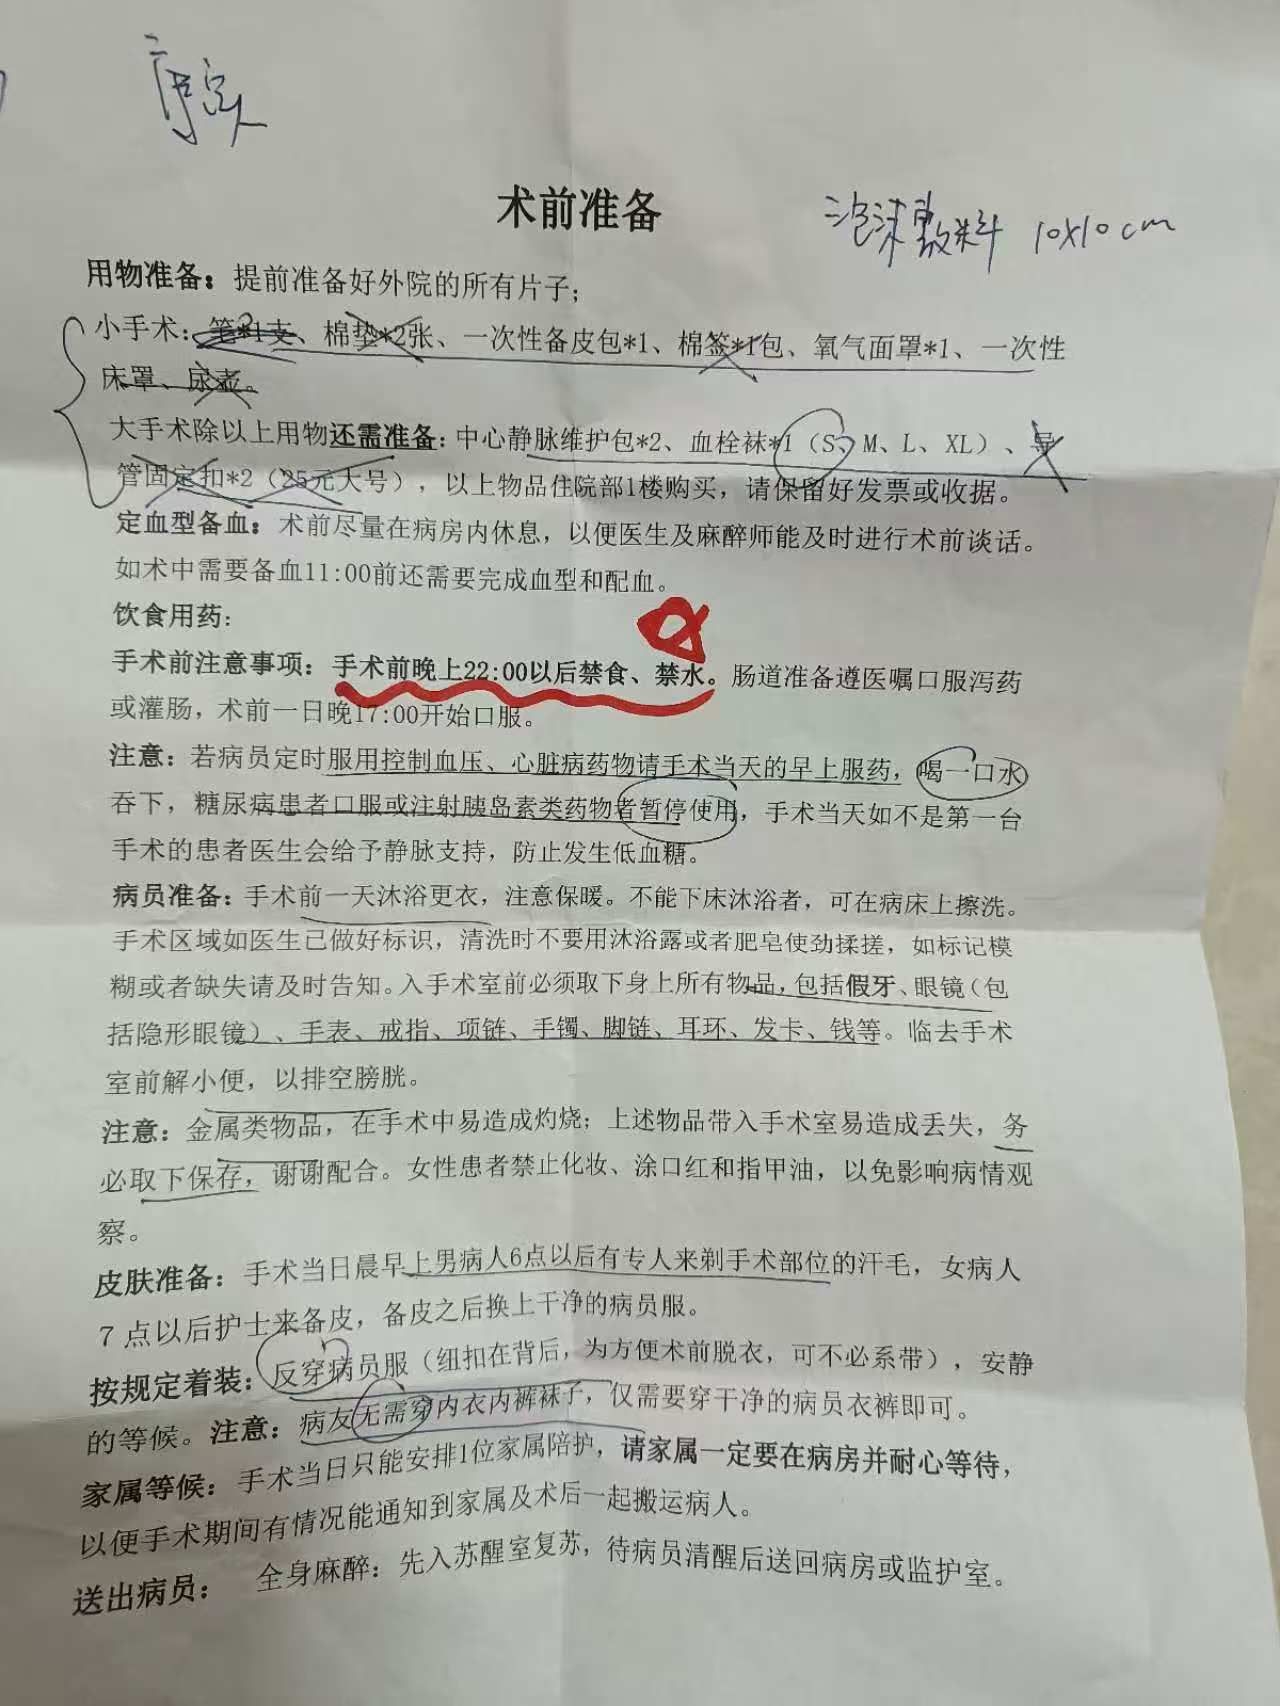 术前准备
泡沫敷料 10X10cm
用物准备：提前准备好外院的所有片子；
小手术：笔*1支、棉垫*2张、一次性备皮包*1、棉签*1包、氧气面罩*1、一次性
床罩、尿壶。
大手术除以上用物还需准备：中心静脉维护包*2、血栓袜*1（S、M、L、XL）、导
管固定扣*2（25元大号），以上物品住院部1楼购买，请保留好发票或收据。
定血型备血：术前尽量在病房内休息，以便医生及麻醉师能及时进行术前谈话。
如术中需要备血11:00前还需要完成血型和配血。
饮食用药：
手术前注意事项：手术前晚上22:00以后禁食、禁水。肠道准备遵医嘱口服泻药
或灌肠，术前一日晚17:00开始口服。
注意：若病员定时服用控制血压、心脏病药物请手术当天的早上服药，喝一口水
吞下，糖尿病患者口服或注射胰岛素类药物者暂停使用，手术当天如不是第一台
手术的患者医生会给予静脉支持，防止发生低血糖。
病员准备：手术前一天沐浴更衣，注意保暖。不能下床沐浴者，可在病床上擦洗。
手术区域如医生已做好标识，清洗时不要用沐浴露或者肥皂使劲揉搓，如标记模
糊或者缺失请及时告知。入手术室前必须取下身上所有物品，包括假牙、眼镜（包
括隐形眼镜）、手表、戒指、项链、手镯、脚链、耳环、发卡、钱等。临去手术
室前解小便，以排空膀胱。
注意：金属类物品，在手术中易造成灼烧；上述物品带入手术室易造成丢失，务
必取下保存，谢谢配合。女性患者禁止化妆、涂口红和指甲油，以免影响病情观
察。
皮肤准备：手术当日晨早上男病人6点以后有专人来剃手术部位的汗毛，女病人
7点以后护士来备皮，备皮之后换上干净的病员服。
按规定着装：反穿病员服（纽扣在背后，为方便术前脱衣，可不必系带），安静
的等候。注意：病友无需穿内衣内裤袜子，仅需要穿干净的病员衣裤即可。
家属等候：手术当日只能安排1位家属陪护，请家属一定要在病房并耐心等待，
以便手术期间有情况能通知到家属及术后一起搬运病人。
送出病员： 全身麻醉：先入苏醒室复苏，待病员清醒后送回病房或监护室。